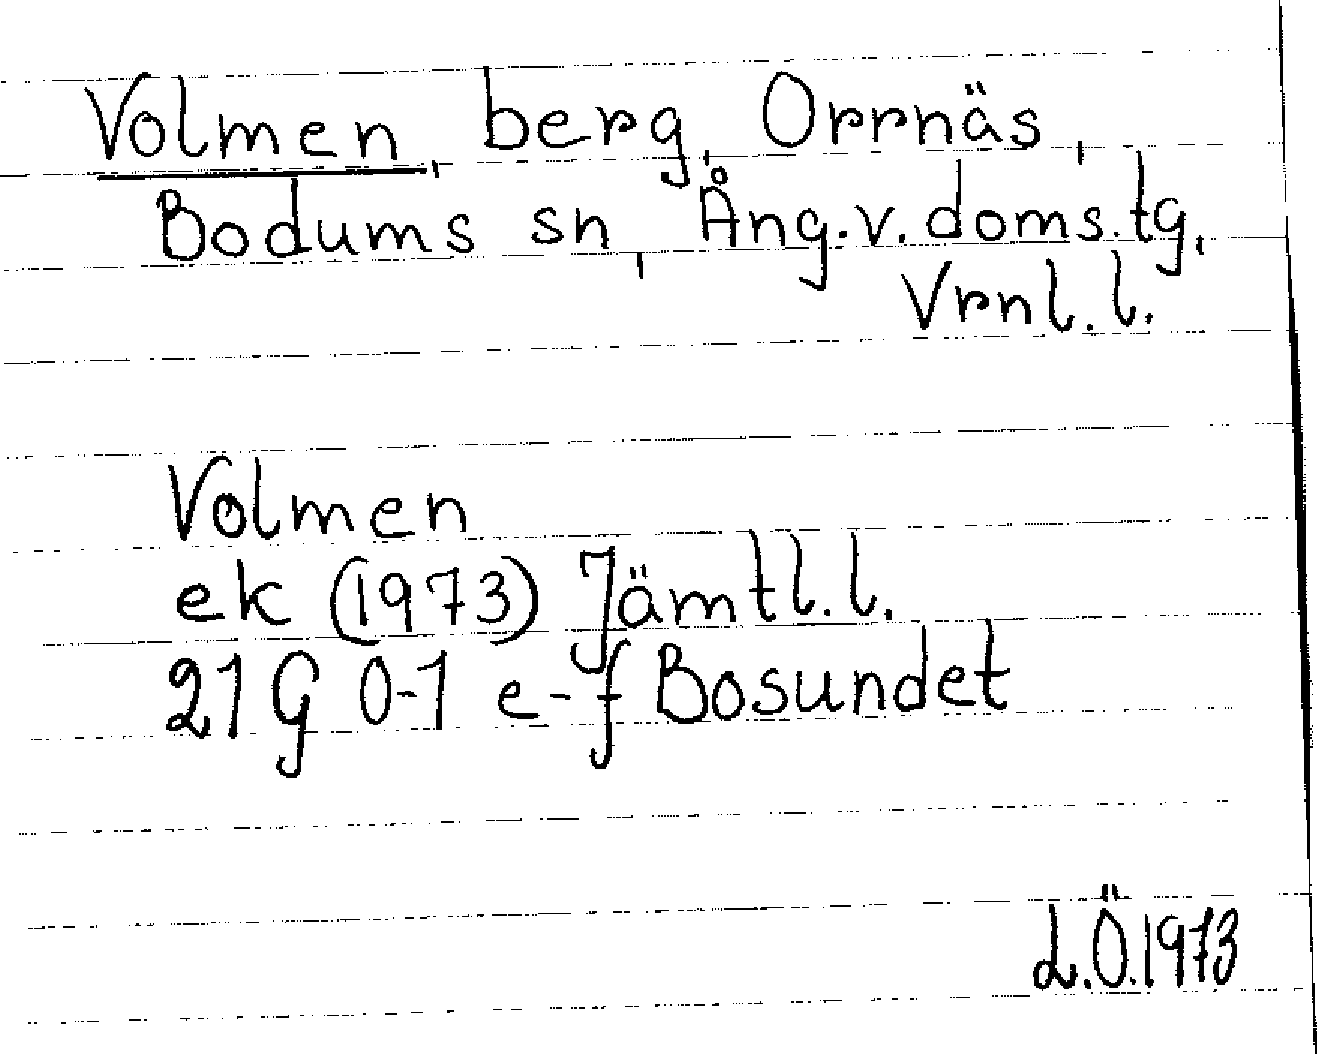 Volmen, berg, Orrnäs,
Bodums sn, Ång.v.doms.tg,
Vrnl.l.
Volmen
ek (1973) Jämtl.l.
21G 0-1 e-f Bosundet
L.Ö.1973